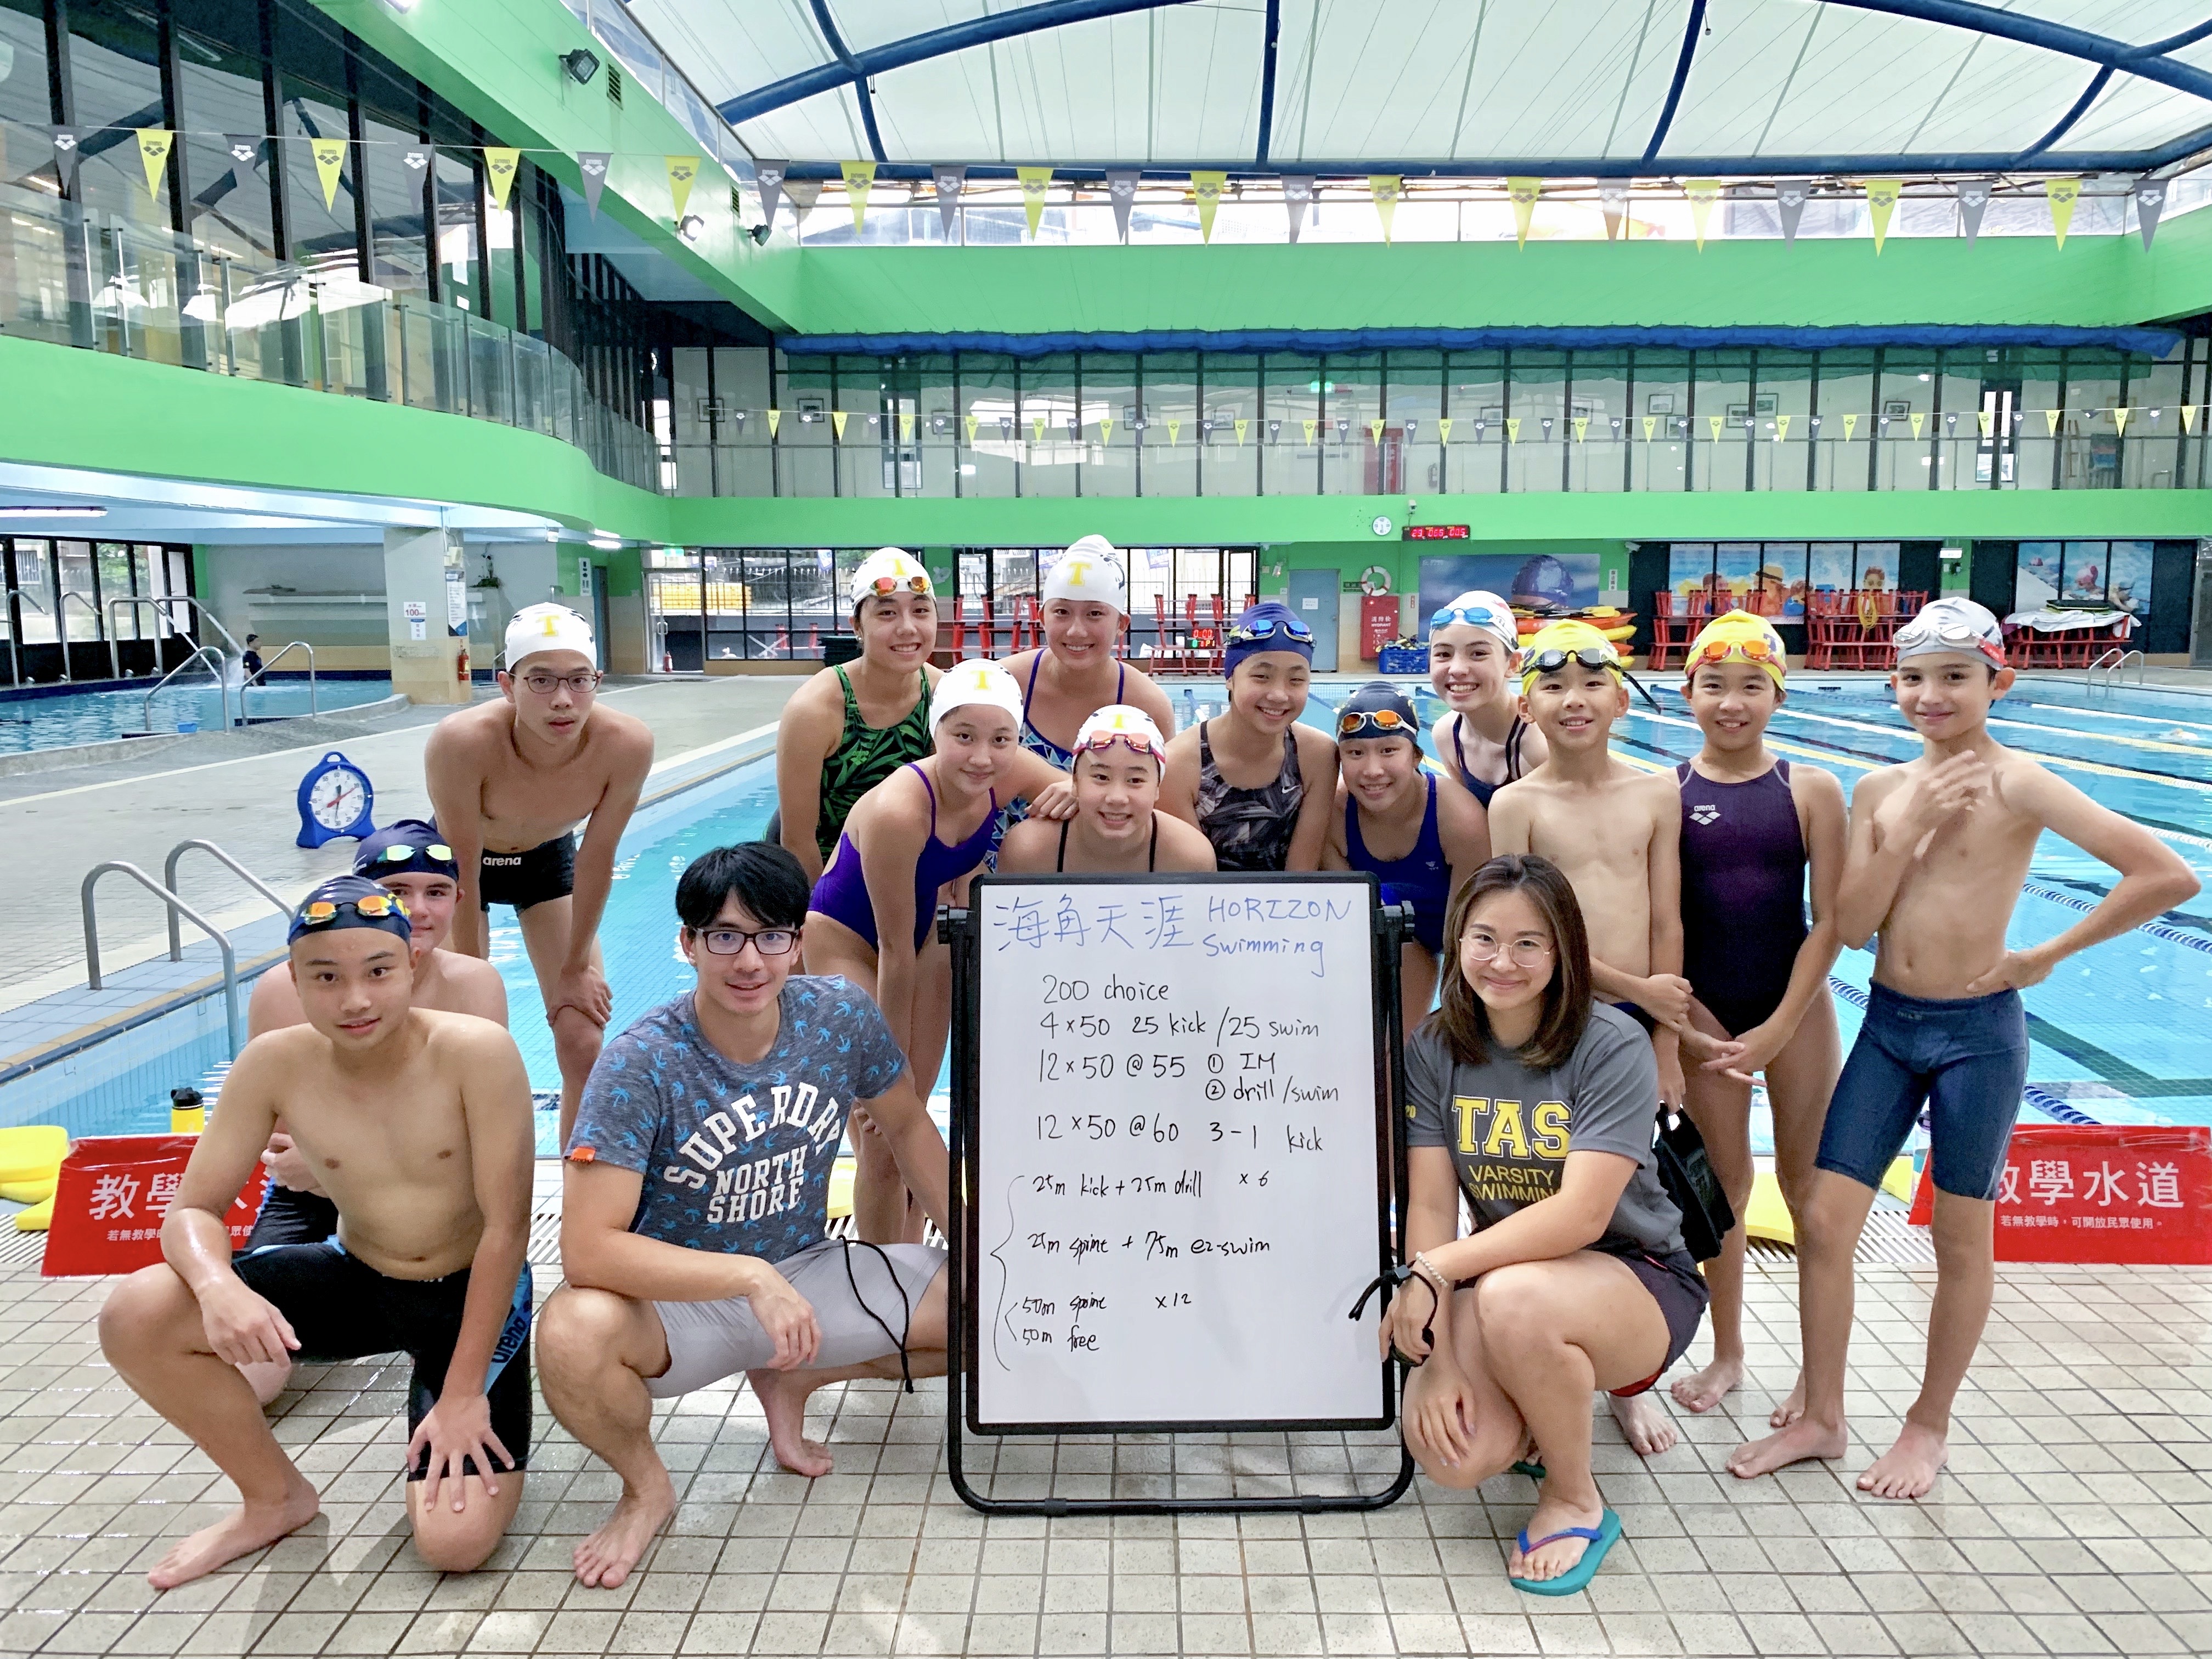 T
T
T
T
T
arena
arena
海角天涯 HORIZON
Swimming
200 choice
4×50 25 kick /25 swim
12×50 @ 55 ① IM
② drill /swim
12×50 @60 3-1 kick
25m kick + 25m drill × 6
25m sprint + 75m ez-swim
50m sprint ×12
50m free
SUPERDRY
NORTH
SHORE
TAS
VARSITY
SWIMMING
教學
若無教學時
教學水道
若無教學時，可開放民眾使用。
arena